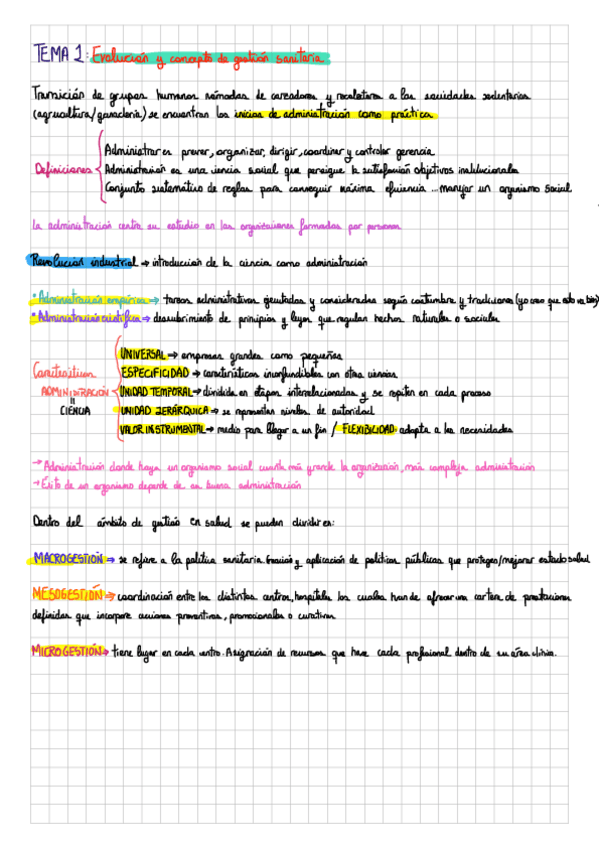 TEMA 1: Evolución y concepto de gestión sanitaria
Transición de grupos humanos nómadas de cazadores y recolectores a las sociedades sedentarias
(agricultura/ganadería) se encuentran los inicios de administración como práctica
Definiciones
Administrar es prever, organizar, dirigir, coordinar y controlar gerencia
Administración es una ciencia social que persigue la satisfacción objetivos institucionales
Conjunto sistemático de reglas para conseguir máxima eficiencia ... manejar un organismo social
La administración centra su estudio en las organizaciones formadas por personas
Revolución industrial → introducción de la ciencia como administración
• Administración empírica → tareas administrativas ejecutadas y consideradas según costumbre y tradiciones (yo creo que esto va bien)
• Administración científica → descubrimiento de principios y leyes que regulan hechos naturales o sociales
Características
ADMINISTRACIÓN
=
CIENCIA
UNIVERSAL → empresas grandes como pequeñas
ESPECIFICIDAD → características inconfundibles con otra ciencias
UNIDAD TEMPORAL → dividida en etapas interrelacionadas y se repiten en cada proceso
UNIDAD JERÁRQUICA → se representan niveles de autoridad
VALOR INSTRUMENTAL → medio para llegar a un fin / FLEXIBILIDAD: adapta a las necesidades
→ Administración donde haya un organismo social cuanto más grande la organización, más compleja administración
→ Éxito de un organismo depende de su buena administración
Dentro del ámbito de gestión en salud se pueden dividir en:
MACROGESTIÓN → se refiere a la política sanitaria. y aplicación de políticas públicas que protegen/mejoran estado salud
MESOGESTIÓN → coordinación entre los distintos centros, hospitales los cuales han de ofrecer una cartera de prestaciones
definidas que incorpore acciones preventivas, promocionales o curativas
MICROGESTIÓN → tiene lugar en cada centro. Asignación de recursos que hace cada profesional dentro de su área clínica.